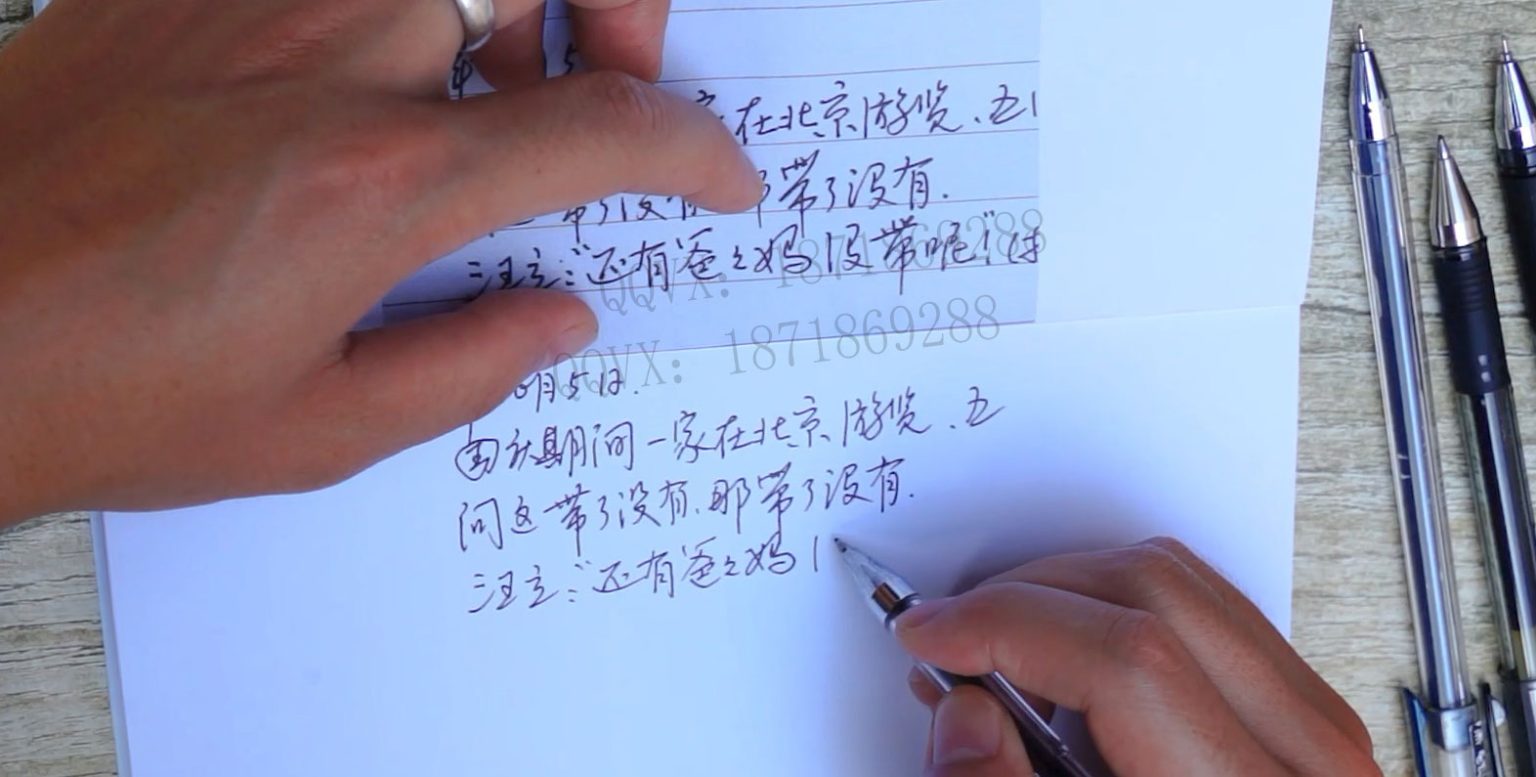 家在北京游览、五
带了没有 那带了没有.
汪立："还有爸々妈没带呢！"
QQVX: 1871869288
QQVX: 1871869288
月5日.
国庆期间一家在北京游览、五
问这带了没有、那带了没有.
汪立："还有爸々妈